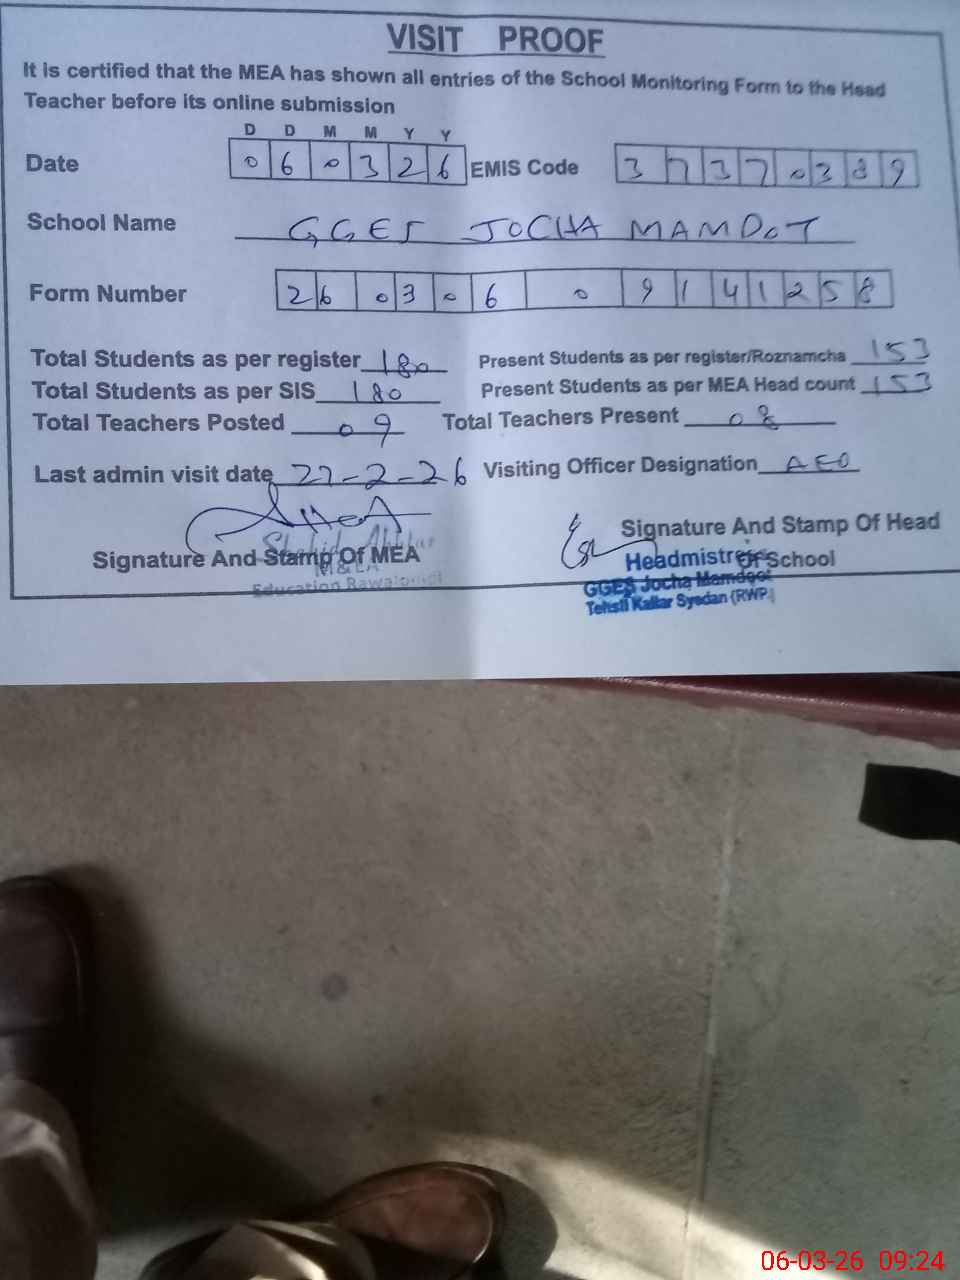 VISIT PROOF
It is certified that the MEA has shown all entries of the School Monitoring Form to the Head
Teacher before its online submission
D D M M Y Y
Date 0 6 0 3 2 6 EMIS Code 3 7 3 7 0 3 8 9
School Name GGES JOCHA MAMDOT
Form Number 26 0 3 0 6 0 9 1 4 1 2 5 8
Total Students as per register 180 Present Students as per register/Roznamcha 153
Total Students as per SIS 180 Present Students as per MEA Head count 153
Total Teachers Posted 09 Total Teachers Present 08
Last admin visit date 27-2-26 Visiting Officer Designation AEO
Signature And Stamp Of MEA Signature And Stamp Of Head
Shahid Akhtar
M&EA
Education Rawalpindi
Headmistress Of School
GGES Jocha Mamdoot
Tehsil Kallar Syedan (RWP.)
06-03-26 09:24